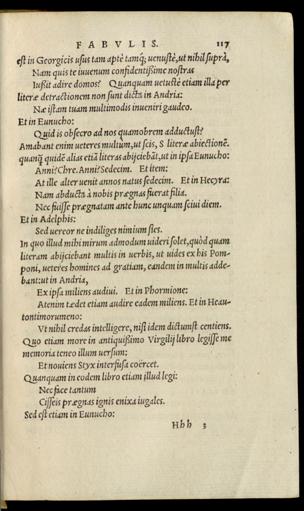 FABVLIS. 117
est in Georgicis usus tam aptè tamq; uenustè, ut nihil suprà,
Nam quis te iuuenum confidentißime nostras
Iußit adire domos? Quanquam uetustè etiam illa per
literæ detractionem non sunt dicta in Andria:
Næ istam tuam multimodis inueniri gaudeo.
Et in Eunucho:
Quid is obsecro ad nos quamobrem adductust?
Amabant enim ueteres multum, ut scis, S literæ abiectionē.
quanq́ quidē alias etiā literas abijciebāt, ut in ipsa Eunucho:
Anni? Chre. Anni? Sedecim. Et item:
At ille alter uenit annos natus sedecim. Et in Hecyra:
Nam abducta à nobis prægnas fuerat filia.
Nec fuisse prægnatem ante hunc unquam sciui diem.
Et in Adelphis:
Sed uereor ne indiliges nimium sies.
In quo illud mihi mirum admodum uideri solet, quòd quam
literam abijciebant multis in uerbis, ut uides ex his Pom-
poni, ueteres homines ad gratiam, eandem in multis adde-
bant: ut in Andria,
Ex ipsa miliens audiui. Et in Phormione:
Atenim tædet etiam audire eadem miliens. Et in Heau-
tontimorumeno:
Vt nihil credas intelligere, nisi idem dictumst centiens.
Quo etiam more in antiquißimo Virgilij libro legisse me
memoria teneo illum uersum:
Et nouiens Styx interfusa coërcet.
Quanquam in eodem libro etiam illud legi:
Nec face tantum
Cisseis prægnas ignis enixa iugales.
Sed est etiam in Eunucho:
Hhh 3